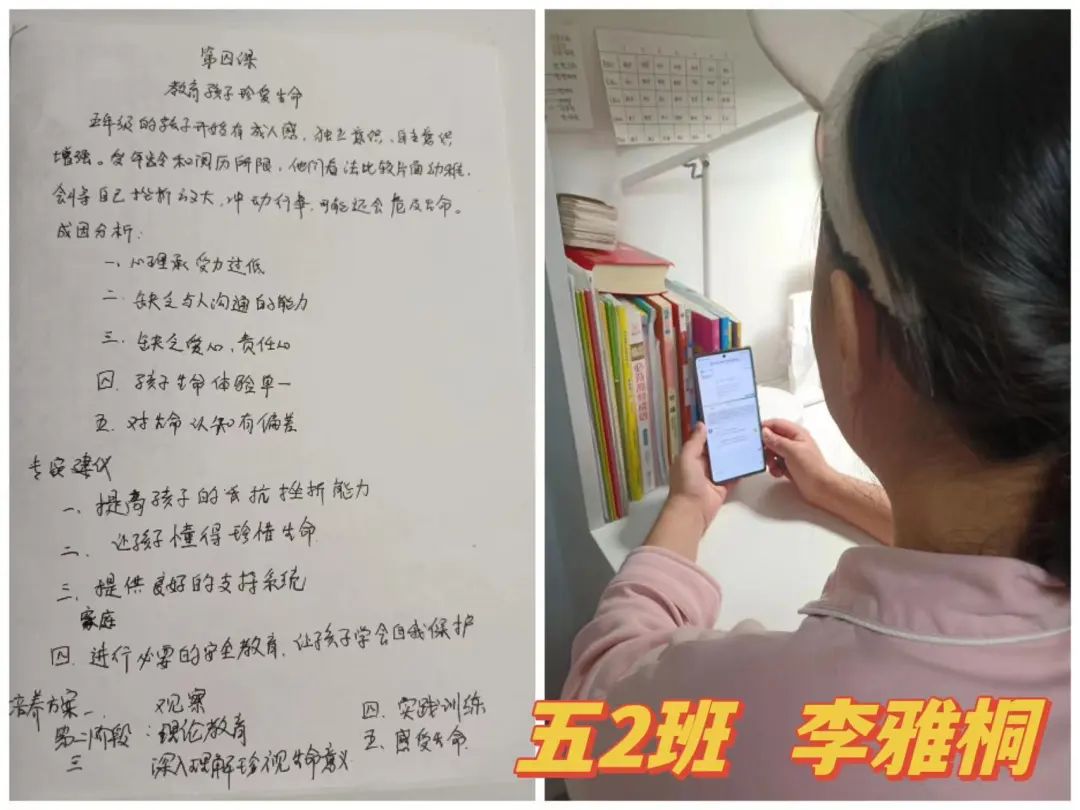 第四课
教育孩子珍爱生命
五年级的孩子开始有成人感，独立意识，自主意识
增强。受年龄和阅历所限，他们看法比较片面幼稚，
会将自己挫折放大，冲动行事，可能还会危及生命。
成因分析：
一、心理承受力过低
二、缺乏与人沟通的能力
三、缺乏爱心，责任心
四、孩子生命体验单一
五、对生命认知有偏差
专家建议
一、提高孩子的抗挫折能力
二、让孩子懂得珍惜生命
三、提供良好的支持系统
家庭
四、进行必要的安全教育，让孩子学会自我保护
培养方案一 观察 四、实践训练
第二阶段：理论教育 五、感受生命
三 深入理解珍视生命意义
五2班 李雅桐